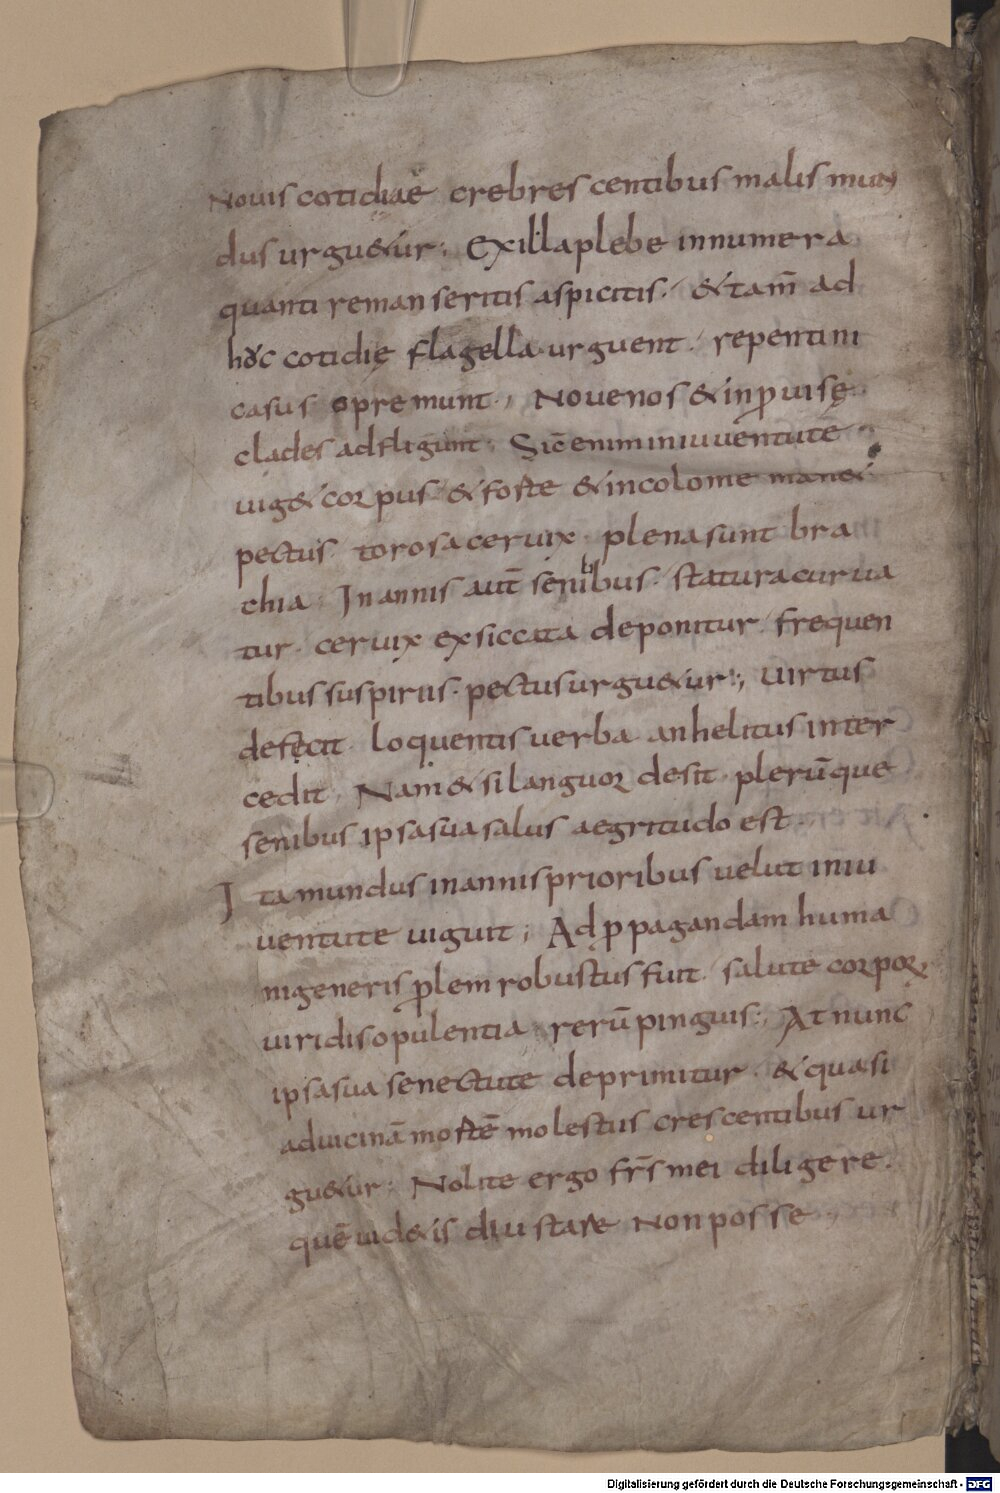 Nouis cotidiae crebres centibus malis mun
dus urgu&ur; Exilla plebe innumera
quanti remanseritis aspicitis. &tam̄ ad
hoc cotidię flagella urguent. repentini
casus opremunt. Nouenos &inprouisę
clades adfligunt; Sic̄ enim iniuuentute
uig& corpus &forte &incolome man&
pectus torosa ceruix. plena sunt bra
chia. In annis aut̄ senibus statura curua
tur. ceruix exsiccata deponitur. frequen
tibus suspiriis. pectus urgu&ur; uirtus
defęcit. loquentis uerba anhelitus inter
cedit. Nam &si languor desit. plerūque
senibus ipsa sua salus aegritudo est
Ita mundus in annis prioribus uelut iniu
uentute uiguit; Ad ꝓpagandam huma
ni generis ꝓlem robustus fuit. salute corpor
uiridis opulentia rerū pinguis; At nunc
ipsa sua senectute deprimitur. &quasi
aduicinā mortē molestus crescentibus ur
gu&ur; Nolite ergo fr̄s mei diligere.
quē uid&is diu stare non posse
Digitalisierung gefördert durch die Deutsche Forschungsgemeinschaft - DFG